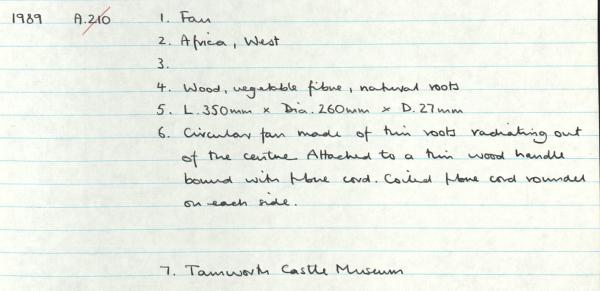 1989 A.210 1. Fan
2. Africa, West
3.
4. Wood, vegetable fibre, natural roots
5. L.350mm x Dia.260mm x D.27mm
6. Circular fan made of thin roots radiating out
of the centre Attached to a thin wood handle
bound with fibre cord. Coiled fibre cord roundel
on each side.
7. Tamworth Castle Museum